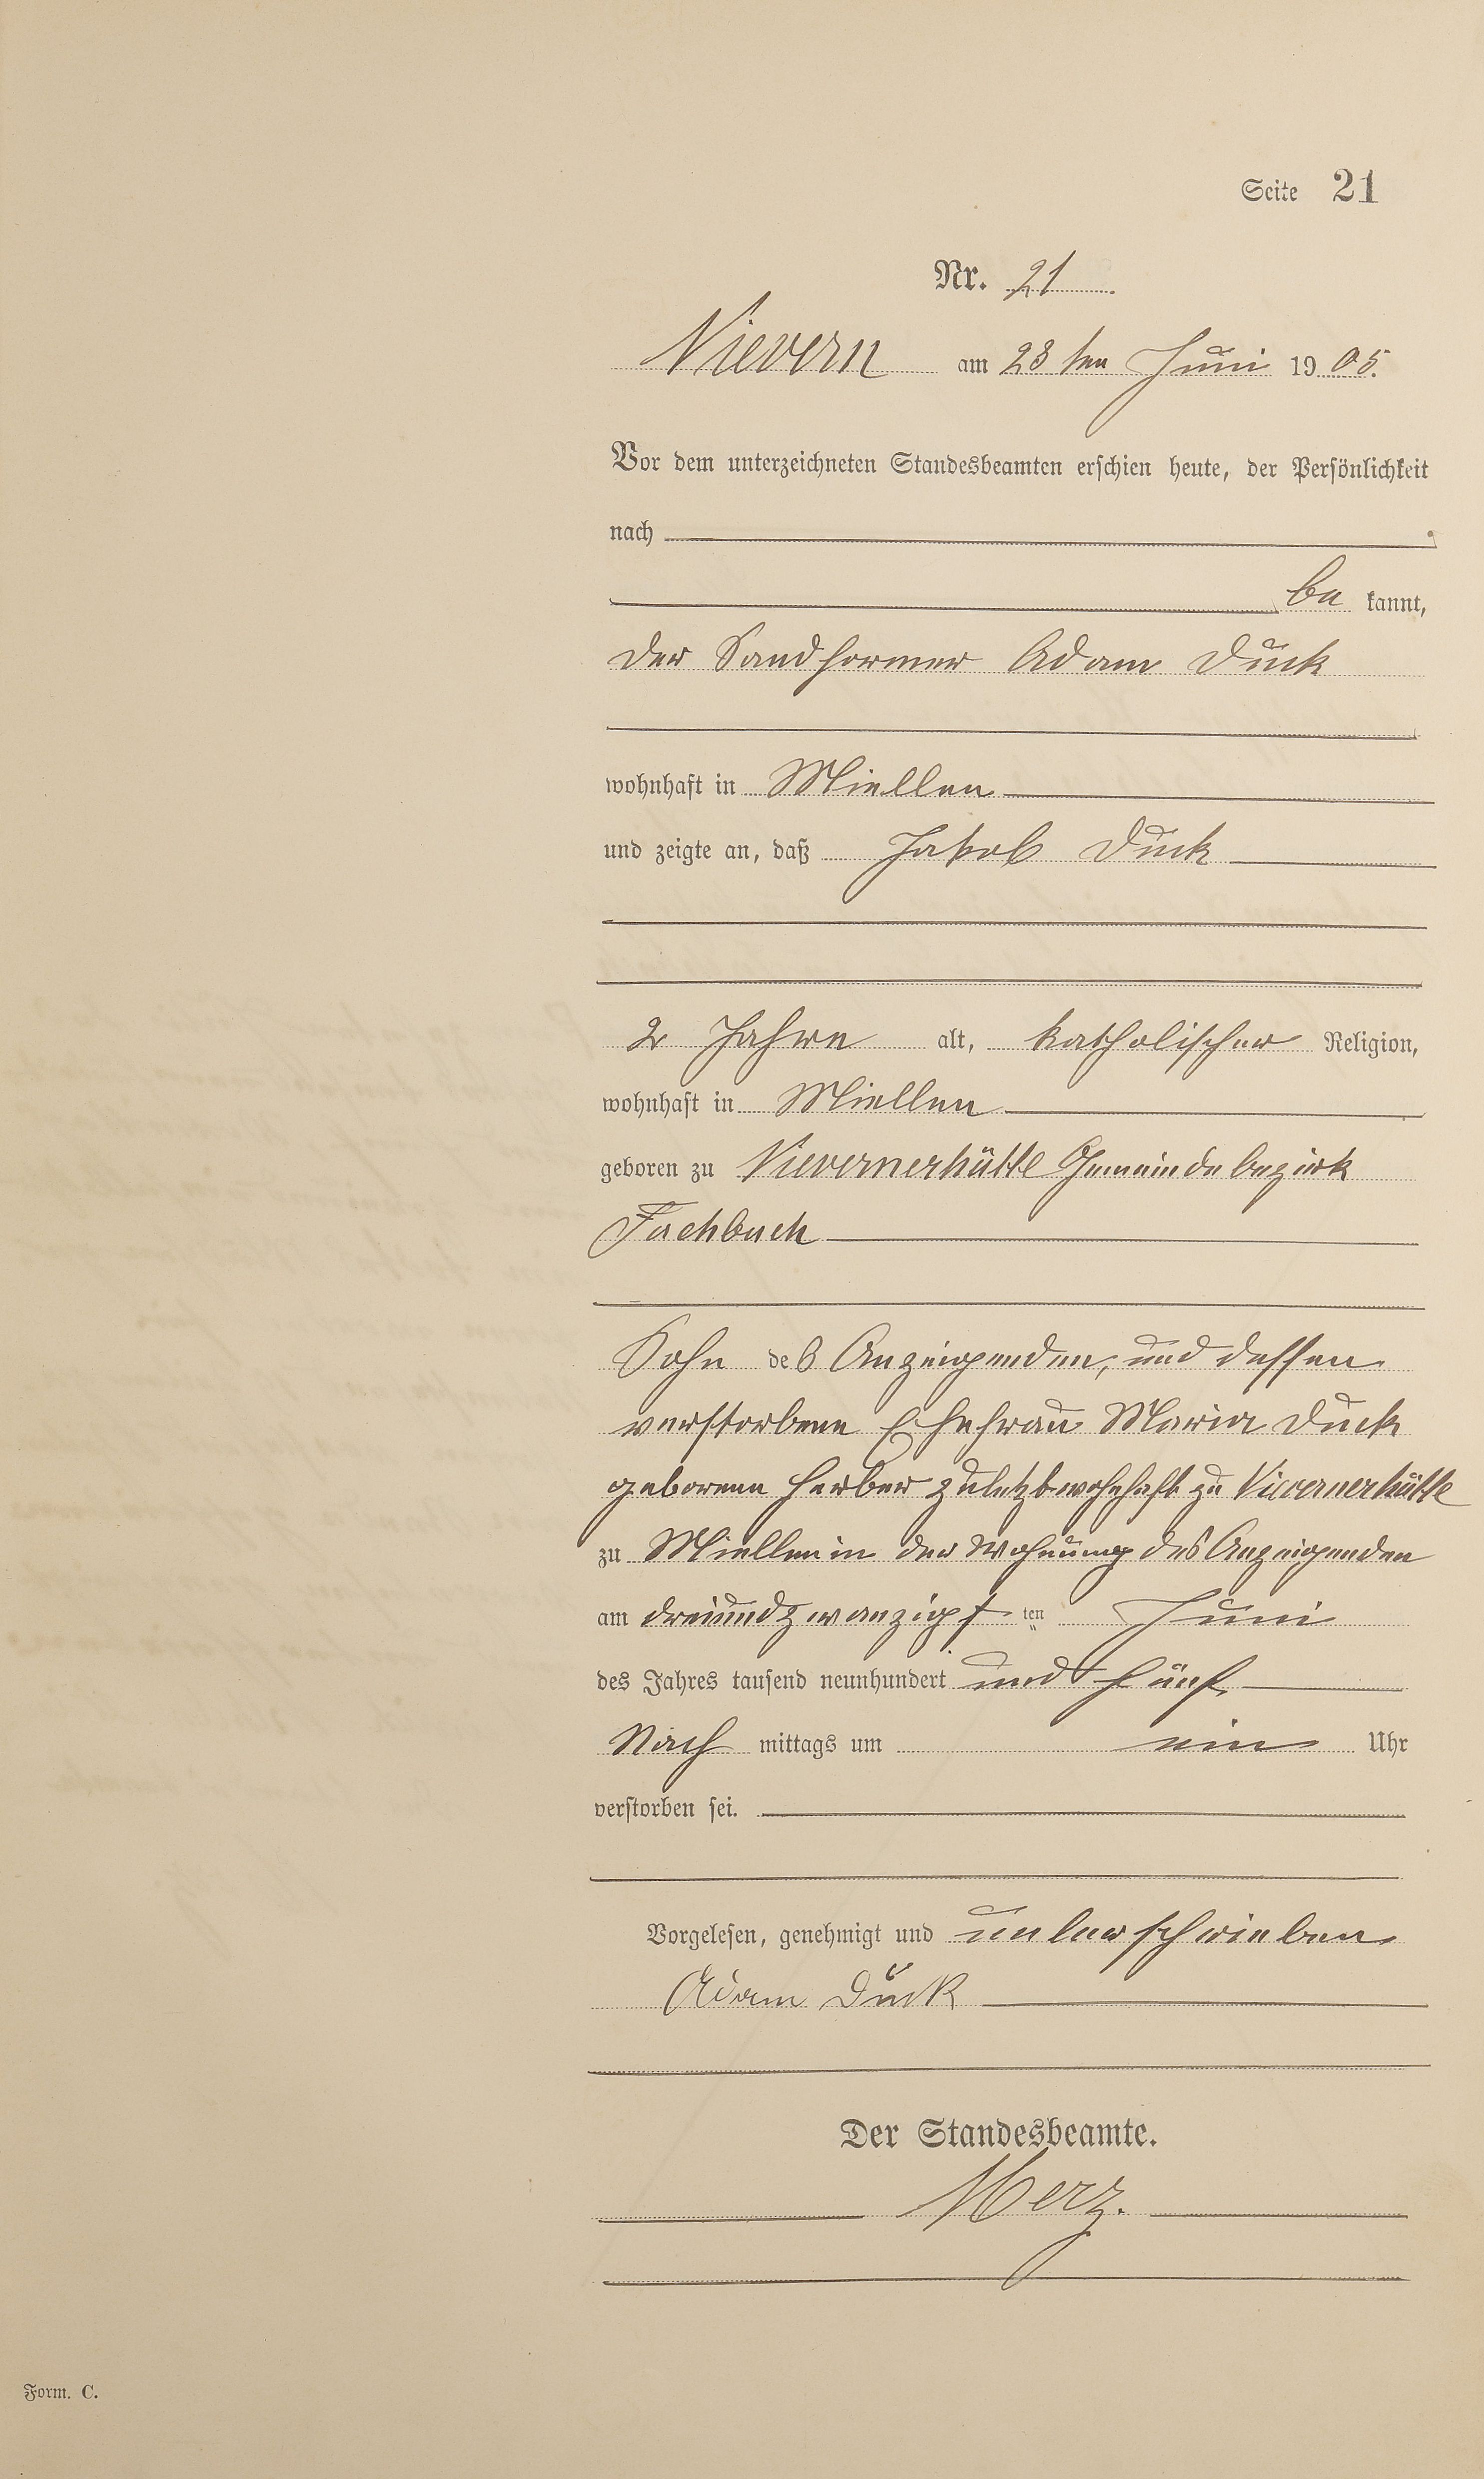 Seite 21
Nr. 21
Nievern am 23 ten Juni 1905.
Vor dem unterzeichneten Standesbeamten erschien heute, der Persönlichkeit
nach
be kannt,
der Sandformer Adam Duck
wohnhaft in Miellen
und zeigte an, daß Jakob Duck
2 Jahre alt, katholischer Religion,
wohnhaft in Miellen
geboren zu Nievernerhütte Gemeindebezirk
Fachbach
Sohn des Anzeigenden, und dessen
verstorbene Ehefrau Maria Duck
geborene Ferber zuletzt wohnhaft zu Nievernerhütte
zu Miellen in der Wohnung des Anzeigenden
am dreiundzwanzigsten Juni
des Jahres tausend neunhundert und fünf
Nach mittags um ein Uhr
verstorben sei.
Vorgelesen, genehmigt und unterschrieben
Adam Duck
Der Standesbeamte.
Merz.
Form. C.